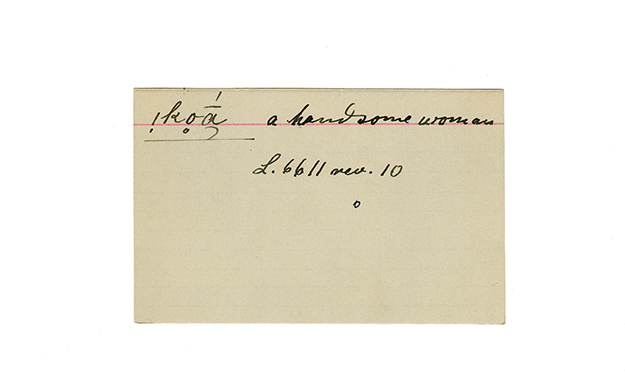 !ko̥ą̄́ a handsome woman
L. 6611 rev. 10